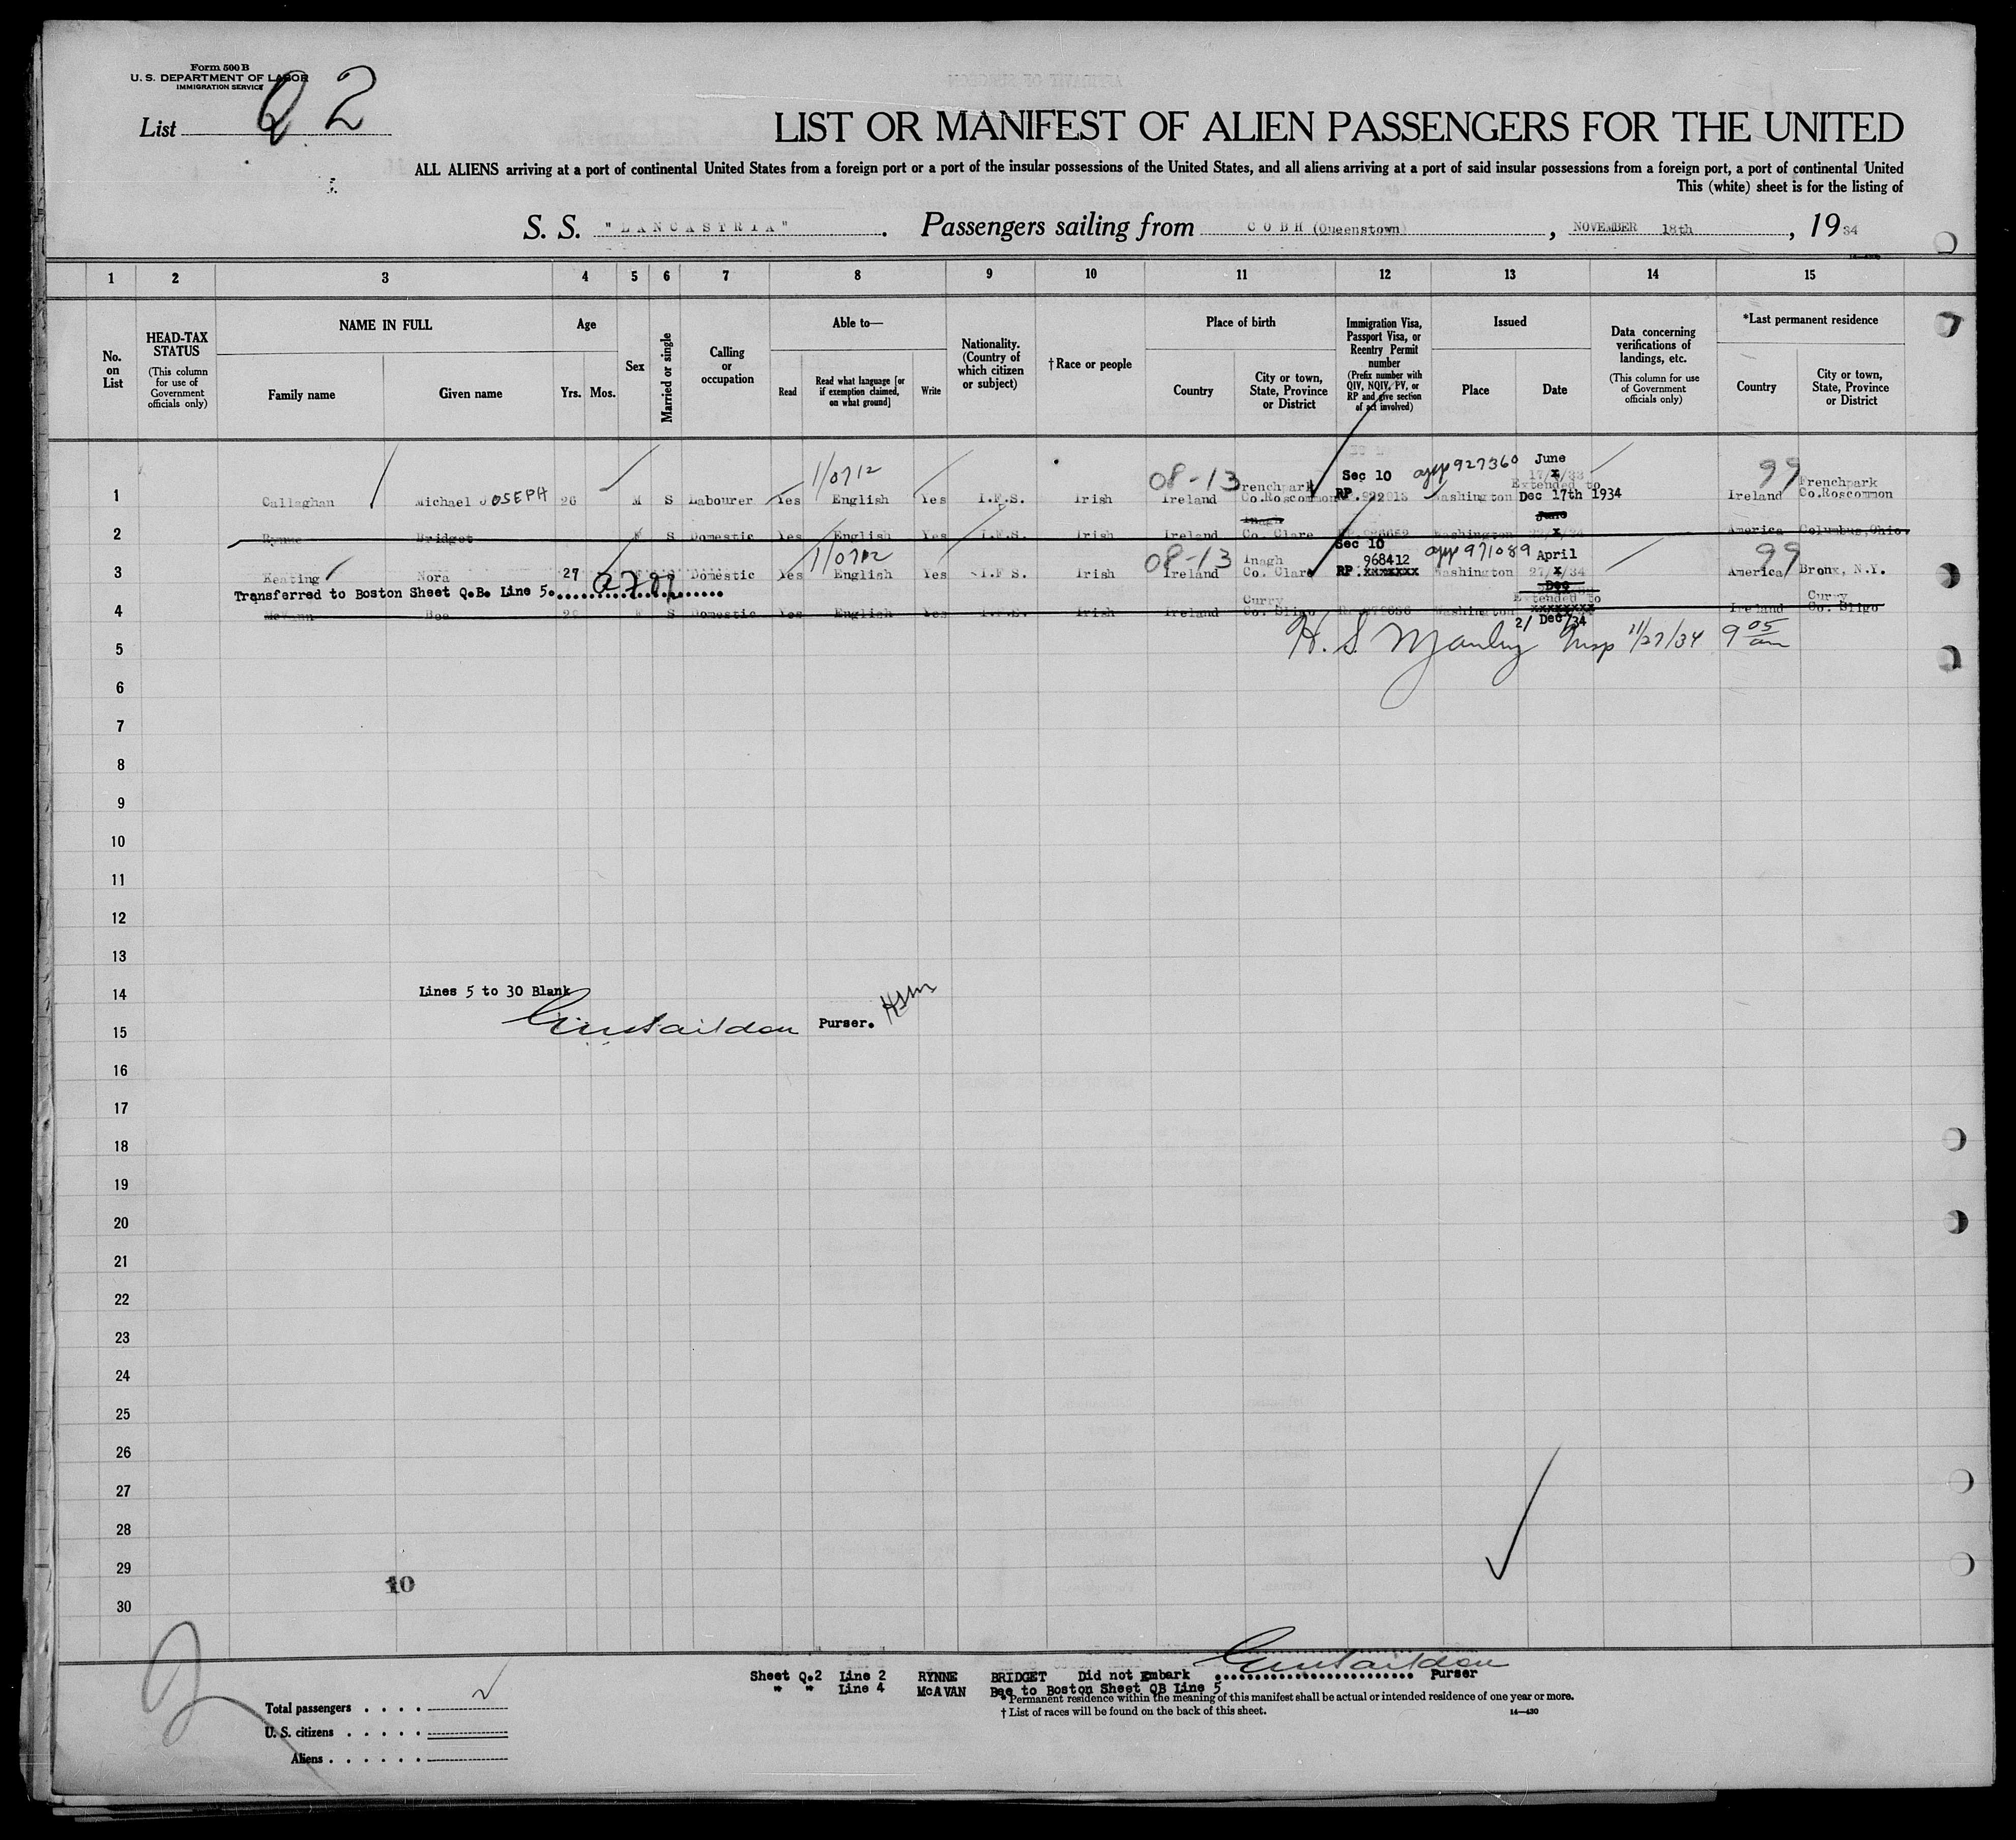 Form 500 B
U. S. DEPARTMENT OF LABOR
IMMIGRATION SERVICE
List Q 2
LIST OR MANIFEST OF ALIEN PASSENGERS FOR THE UNITED
ALL ALIENS arriving at a port of continental United States from a foreign port or a port of the insular possessions of the United States, and all aliens arriving at a port of said insular possessions from a foreign port, a port of continental United
This (white) sheet is for the listing of
S. S. "LANCASTRIA". Passengers sailing from COBH (Queenstown), NOVEMBER 18th, 1934
1 2 3 4 5 6 7 8 9 10 11 12 13 14 15
No. on List
HEAD-TAX STATUS (This column for use of Government officials only)
NAME IN FULL
Family name Given name
Age
Yrs. Mos.
Sex
Married or single
Calling or occupation
Able to—
Read Read what language [or if exemption claimed, on what ground] Write
Nationality. (Country of which citizen or subject)
† Race or people
Place of birth
Country City or town, State, Province or District
Immigration Visa, Passport Visa, or Reentry Permit number (Prefix number with QIV, NQIV, PV, or RP and give section of act involved)
Issued
Place Date
Data concerning verifications of landings, etc. (This column for use of Government officials only)
*Last permanent residence
Country City or town, State, Province or District
1/0712 08-13 Frenchpark Sec 10 app 927360 June 17/x/33 Extended to 99 Frenchpark
1 Callaghan Michael JOSEPH 26 M S Labourer Yes English Yes I.F.S. Irish Ireland Co.Roscommon RP. Washington Dec 17th 1934 Ireland Co.Roscommon
Inagh June
2 Rynne Bridget F S Domestic Yes English Yes I.F.S. Irish Ireland Co. Clare Washington America Columbus,Ohio.
1/0712 08-13 Inagh Sec 10 968412 app 971089 April 99
3 Keating Nora 27 F Domestic Yes English Yes I.F.S. Irish Ireland Co. Clare RP. xxxxxxx Washington 27/x/34 America Bronx, N.Y.
Transferred to Boston Sheet Q.B. Line 5.
Curry Dec Extended to Curry
4 McVann Bee 28 F S Domestic Yes English Yes I.F.S. Irish Ireland Co. Sligo Washington xxxxxxxx Ireland Co. Sligo
21 Dec/34
5 H. S. Manley Insp 11/27/34 9 05 am
6
7
8
9
10
11
12
13
14 Lines 5 to 30 Blank
15 Purser. HSM
16
17
18
19
20
21
22
23
24
25
26
27
28
29
10
30
Sheet Q.2 Line 2 RYNNE BRIDGET Did not Embark Purser
" " Line 4 McAVAN Bee to Boston Sheet QB Line 5
* Permanent residence within the meaning of this manifest shall be actual or intended residence of one year or more.
† List of races will be found on the back of this sheet.
14—430
Total passengers
U. S. citizens
Aliens